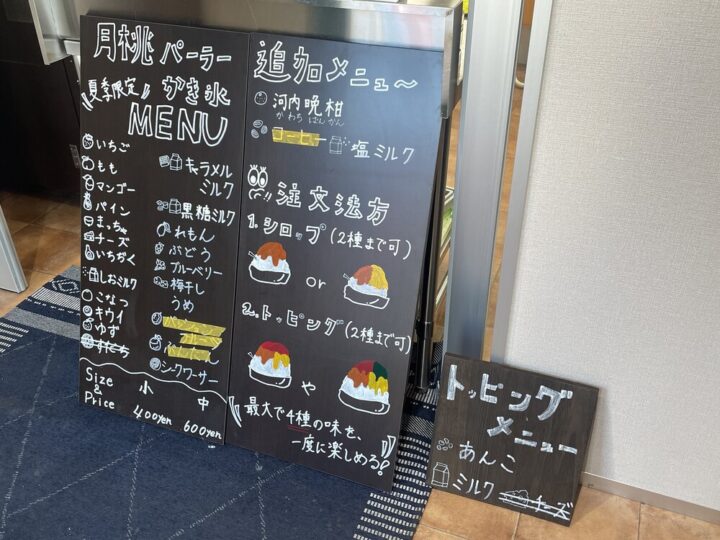 月桃パーラー
夏季限定
かき氷
MENU
いちご
もも
マンゴー
パイン
まっちゃ
チーズ
いちぢく
しおミルク
こなつ
キウイ
ゆず
キャラメル
ミルク
黒糖ミルク
れもん
ぶどう
ブルーベリー
梅干し
うめ
シークワーサー
Size
&
Price
小
400yen
中
600yen
追加メニュ〜
河内晩柑
かわちばんかん
コーヒー
塩ミルク
注文法方
1.シロップ(2種まで可)
or
2.トッピング(2種まで可)
や
最大で4種の味を、
一度に楽しめる!
トッピング
メニュー
あんこ
ミルク
チーズ